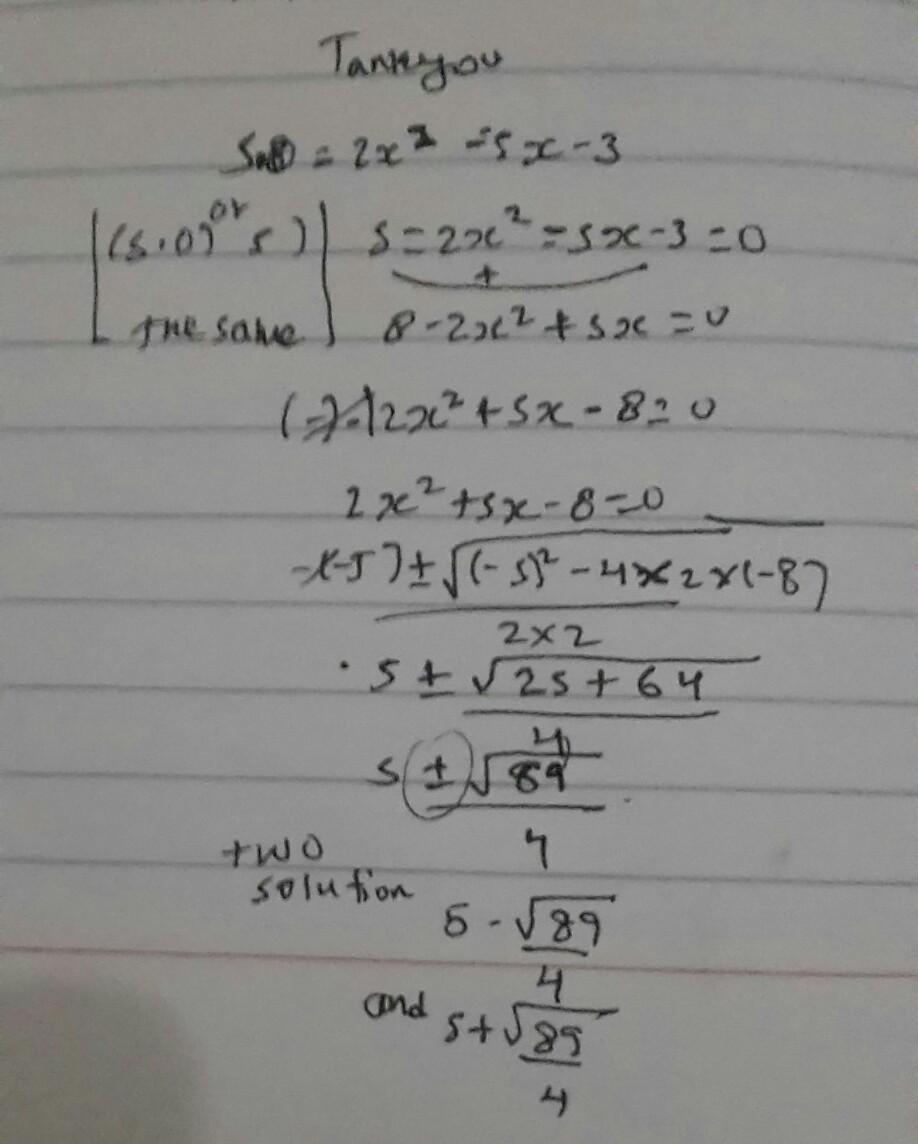 Tankyou
= 2x² -5x-3
(5.0) or 5) S=2x² -5x-3=0
+
the same 8-2x²+5x=0
2x²+5x-8=0
2x²+5x-8=0
-(-5)±√(-5)²-4x2x(-8)
2x2
5±√25+64
4
5±√89
4
two
solution
5-√89
4
and 5+√89
4